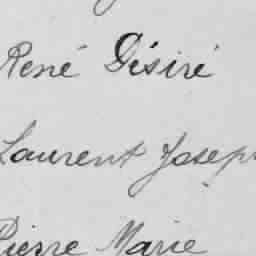 René Désiré
Laurent Joseph
Pierre Marie